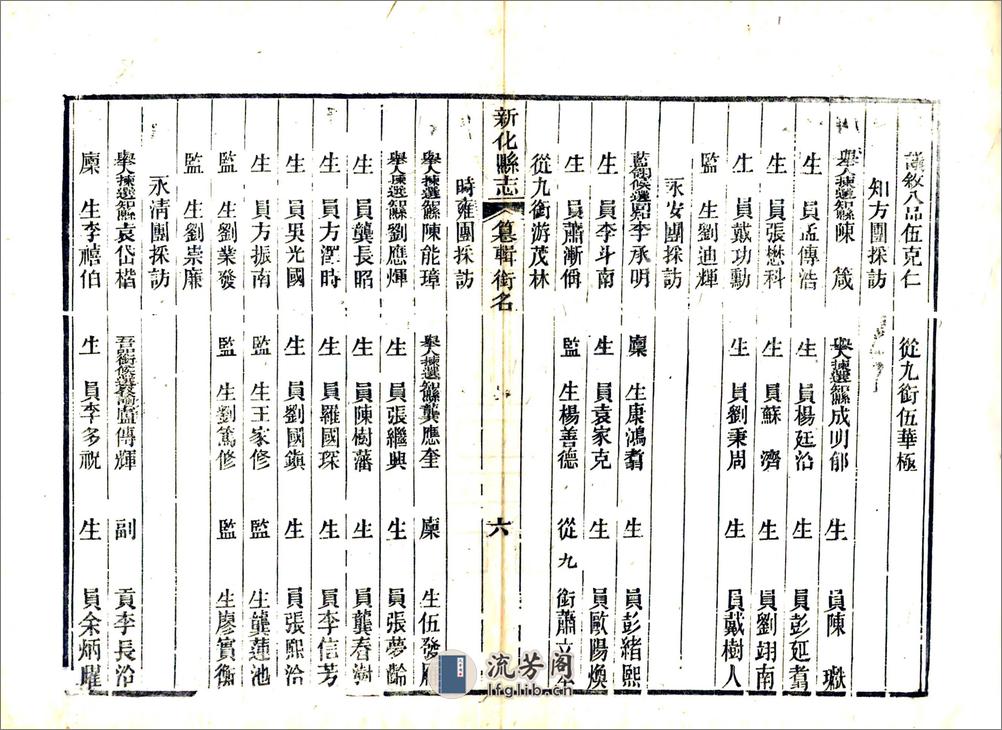 議敘八品伍克仁 從九銜伍華極
知方團採訪
舉人揀選知縣陳 箴 舉人揀選知縣成明郁 生 員陳 瓛
生 員孟傳浩 生 員楊廷治 生 員彭延翥
生 員張懋科 生 員蘇 濟 生 員劉翊南
生 員戴功勳 生 員劉秉周 生 員戴樹人
監 生劉迪輝
永安團採訪
李承明 廩 生康鴻翥 生 員彭緒熙
生 員李斗南 生 員袁家克 生 員歐陽煥
生 員蕭漸偁 監 生楊善德 從九銜蕭立
從九銜游茂林
新化縣志 纂輯銜名 六
時雍團採訪
舉人揀選知縣陳能璋 舉人揀選知縣龔應奎 廩 生伍發
舉人揀選知縣劉應煇 生 員張繼興 生 員張夢齡
生 員龔長昭 生 員陳樹藩 生 員龔春澍
生 員方潤時 生 員羅國琛 生 員李信芳
生 員吳光國 生 員劉國鎮 生 員張熙治
生 員方振南 監 生王家修 監 生龔蓮池
監 生劉業發 監 生劉篤修 監 生廖實衡
監 生劉崇廉
永清團採訪
舉人揀選知縣袁岱楷 盧傳輝 副 貢李長治
廩 生李禧伯 生 員李多祝 生 員余炳曜
流芳阁
lfglib.cn